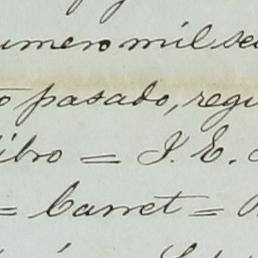 umero mil se
o pasado, regi
ibro = J. E.
= Carret =